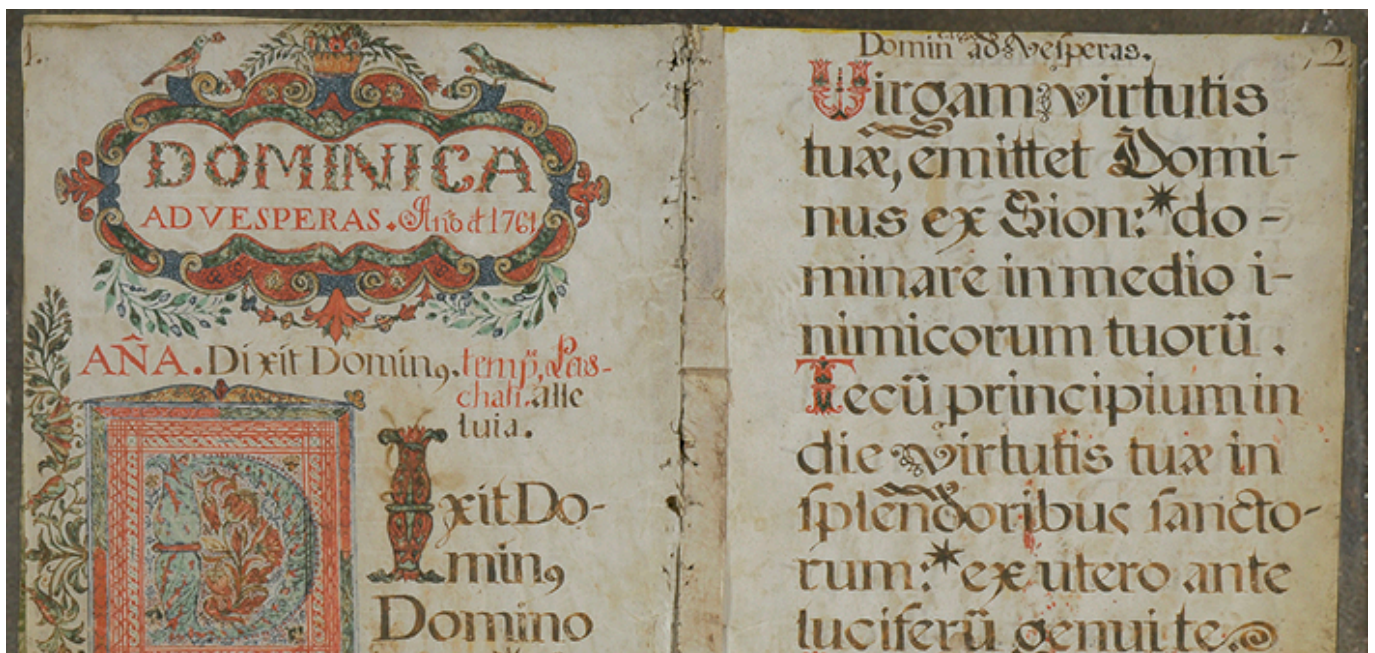 1.
DOMINICA
AD VESPERAS. Año d 1761
AÑA. Dixit Dominꝯ. temp, Pas-
chali. alle
luia.
DIxit Do-
minꝯ
Domino
2
Domin ad Vesperas.
Virgam virtutis
tuæ, emittet Domi-
nus ex Sion: *do-
minare in medio i-
nimicorum tuorũ.
Tecũ principium in
die virtutis tuæ in
splendoribus sancto-
rum: *ex utero ante
luciferũ genui te.